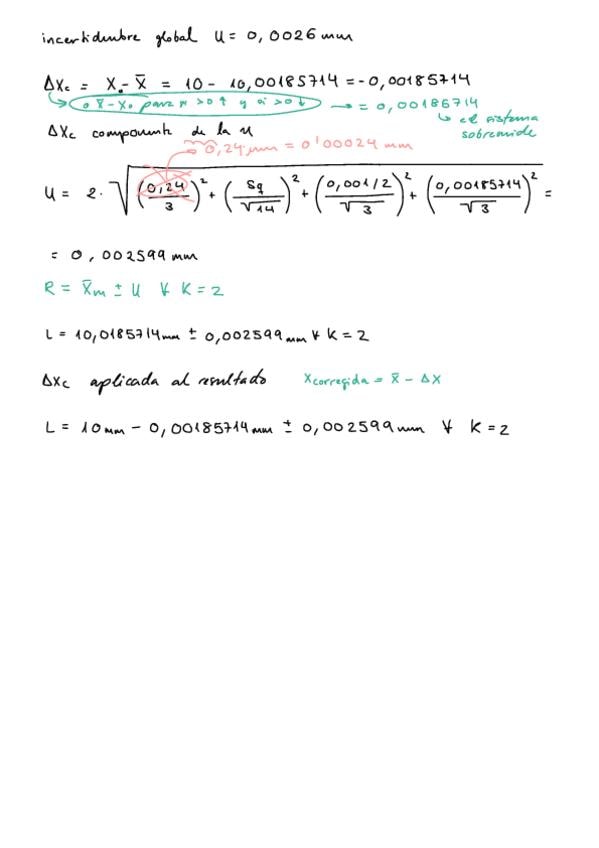 incertidumbre global U = 0,0026 mm
ΔXc = X₀ - X̄ = 10 - 10,00185714 = -0,00185714
o X̄ - X₀ para si >0 ↑ y si >0 ↓ → = 0,00185714
↳ el sistema sobremide
ΔXc componente de la u
→ 0,24 μm = 0'00024 mm
U = 2·√((0,24/3)² + (Sq/√14)² + ((0,001/2)/√3)² + (0,00185714/√3)²) =
= 0,002599 mm
R = X̄m ± U ∀ K = 2
L = 10,0185714 mm ± 0,002599 mm ∀ K = 2
ΔXc aplicada al resultado Xcorregida = X̄ - ΔX
L = 10 mm - 0,00185714 mm ± 0,002599 mm ∀ K = 2